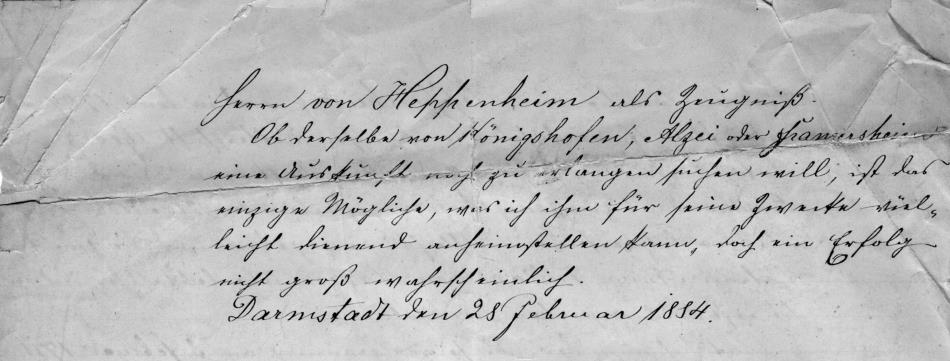 Herrn von Heppenheim als Zeugniß.
Ob derselbe von Königshofen, Alzei oder
eine Auskunft noch zu erlangen suchen will, ist das
einzige Mögliche, was ich ihm für seine Zwecke viel-
leicht dienend anheimstellen kann, doch ein Erfolg
nicht groß wahrscheinlich.
Darmstadt den 28 Februar 1884.